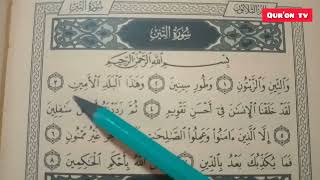 Qur'on TV
سُورَةُ التِّينِ
سُورَةُ التِّينِ
بِسْمِ اللَّهِ الرَّحْمَٰنِ الرَّحِيمِ
وَالتِّينِ وَالزَّيْتُونِ ١ وَطُورِ سِينِينَ ٢ وَهَٰذَا الْبَلَدِ الْأَمِينِ ٣
لَقَدْ خَلَقْنَا الْإِنْسَٰنَ فِي أَحْسَنِ تَقْوِيمٍ ٤ ثُمَّ رَدَدْنَٰهُ أَسْفَلَ سَٰفِلِينَ ٥
إِلَّا الَّذِينَ ءَامَنُوا وَعَمِلُوا الصَّٰلِحَٰتِ غَيْرُ مَمْنُونٍ ٦
فَمَا يُكَذِّبُكَ بَعْدُ بِالدِّينِ ٧ اللَّهُ بِأَحْكَمِ الْحَٰكِمِينَ ٨